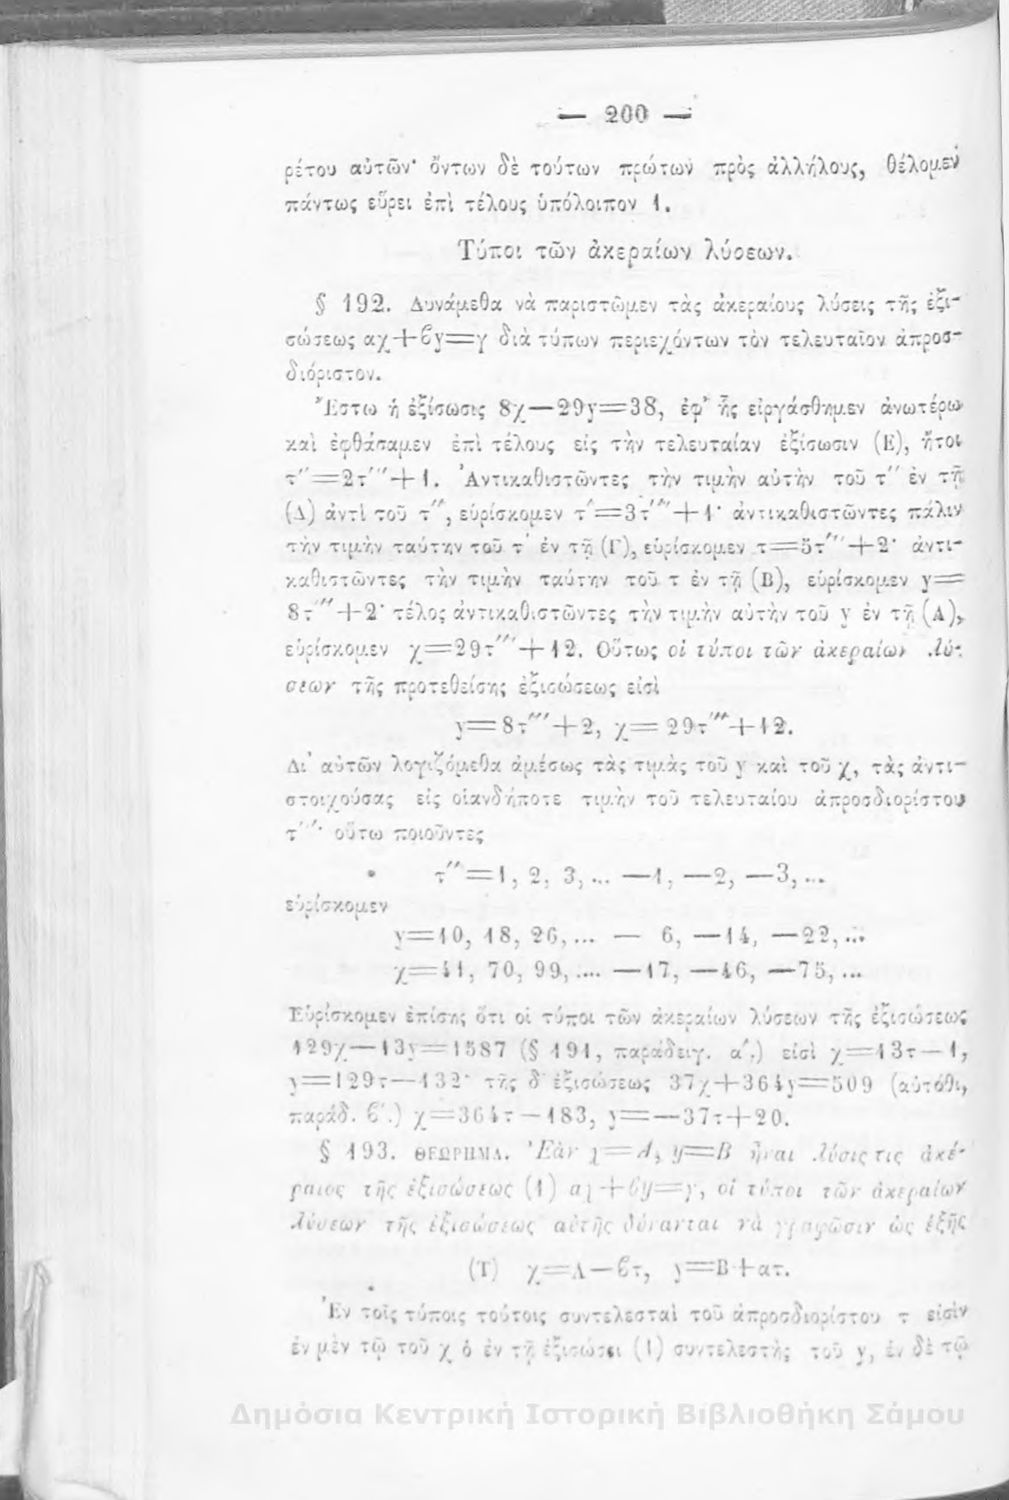 — 200 —
ρέτου αὐτῶν· ὄντων δὲ τούτων πρώτων πρὸς ἀλλήλους, θέλομεν
πάντως εὕρει ἐπὶ τέλους ὑπόλοιπον 1.
Τύποι τῶν ἀκεραίων λύσεων.
§ 192. Δυνάμεθα νὰ παριστῶμεν τὰς ἀκεραίους λύσεις τῆς ἐξι-
σώσεως αχ+ϐy=γ διὰ τύπων περιεχόντων τὸν τελευταῖον ἀπροσ-
διόριστον.
Ἔστω ἡ ἐξίσωσις 8χ—29y=38, ἐφ' ἧς εἰργάσθημεν ἀνωτέρω
καὶ ἐφθάσαμεν ἐπὶ τέλους εἰς τὴν τελευταίαν ἐξίσωσιν (Ε), ἤτοι
τ''=2τ'''+1. Ἀντικαθιστῶντες τὴν τιμὴν αὐτὴν τοῦ τ'' ἐν τῇ
(Δ) ἀντὶ τοῦ τ'', εὑρίσκομεν τ'=3τ'''+1· ἀντικαθιστῶντες πάλιν
τὴν τιμὴν ταύτην τοῦ τ' ἐν τῇ (Γ), εὑρίσκομεν τ=5τ'''+2· ἀντι-
καθιστῶντες τὴν τιμὴν ταύτην τοῦ τ ἐν τῇ (Β), εὑρίσκομεν y=
8τ'''+2· τέλος ἀντικαθιστῶντες τὴν τιμὴν αὐτὴν τοῦ y ἐν τῇ (Α),
εὑρίσκομεν χ=29τ'''+12. Οὕτως οἱ τύποι τῶν ἀκεραίων λύ-
σεων τῆς προτεθείσης ἐξισώσεως εἰσὶ
y=8τ'''+2, χ=29τ'''+12.
Δι' αὐτῶν λογιζόμεθα ἀμέσως τὰς τιμὰς τοῦ y καὶ τοῦ χ, τὰς ἀντι-
στοιχούσας εἰς οἱανδήποτε τιμὴν τοῦ τελευταίου ἀπροσδιορίστου
τ'''· οὕτω ποιοῦντες
τ''=1, 2, 3,... —1, —2, —3,...
εὑρίσκομεν
y=10, 18, 26,... — 6, —14, —22,...
χ=41, 70, 99,.... —17, —46, —75,...
Εὑρίσκομεν ἐπίσης ὅτι οἱ τύποι τῶν ἀκεραίων λύσεων τῆς ἐξισώσεως
129χ—13y=1587 (§ 191, παράδειγ. α'.) εἰσὶ χ=13τ—1,
y=129τ—132· τῆς δ' ἐξισώσεως 37χ+364y=509 (αὐτόθι,
παράδ. ϐ'.) χ=364τ—183, y=—37τ+20.
§ 193. ΘΕΩΡΗΜΑ. Ἐὰν χ=Α, y=Β ἦναι λύσις τις ἀκέ-
ραιος τῆς ἐξισώσεως (1) αχ+ϐy=γ, οἱ τύποι τῶν ἀκεραίων
λύσεων τῆς ἐξισώσεως αὐτῆς δύνανται νὰ γραφῶσιν ὡς ἑξῆς
(Τ) χ=Α—ϐτ, y=Β+ατ.
Ἐν τοῖς τύποις τούτοις συντελεσταὶ τοῦ ἀπροσδιορίστου τ εἰσὶν
ἐν μὲν τῷ τοῦ χ ὁ ἐν τῇ ἐξισώσει (1) συντελεστὴς τοῦ y, ἐν δὲ τῷ
Δημόσια Κεντρική Ιστορική Βιβλιοθήκη Σάμου